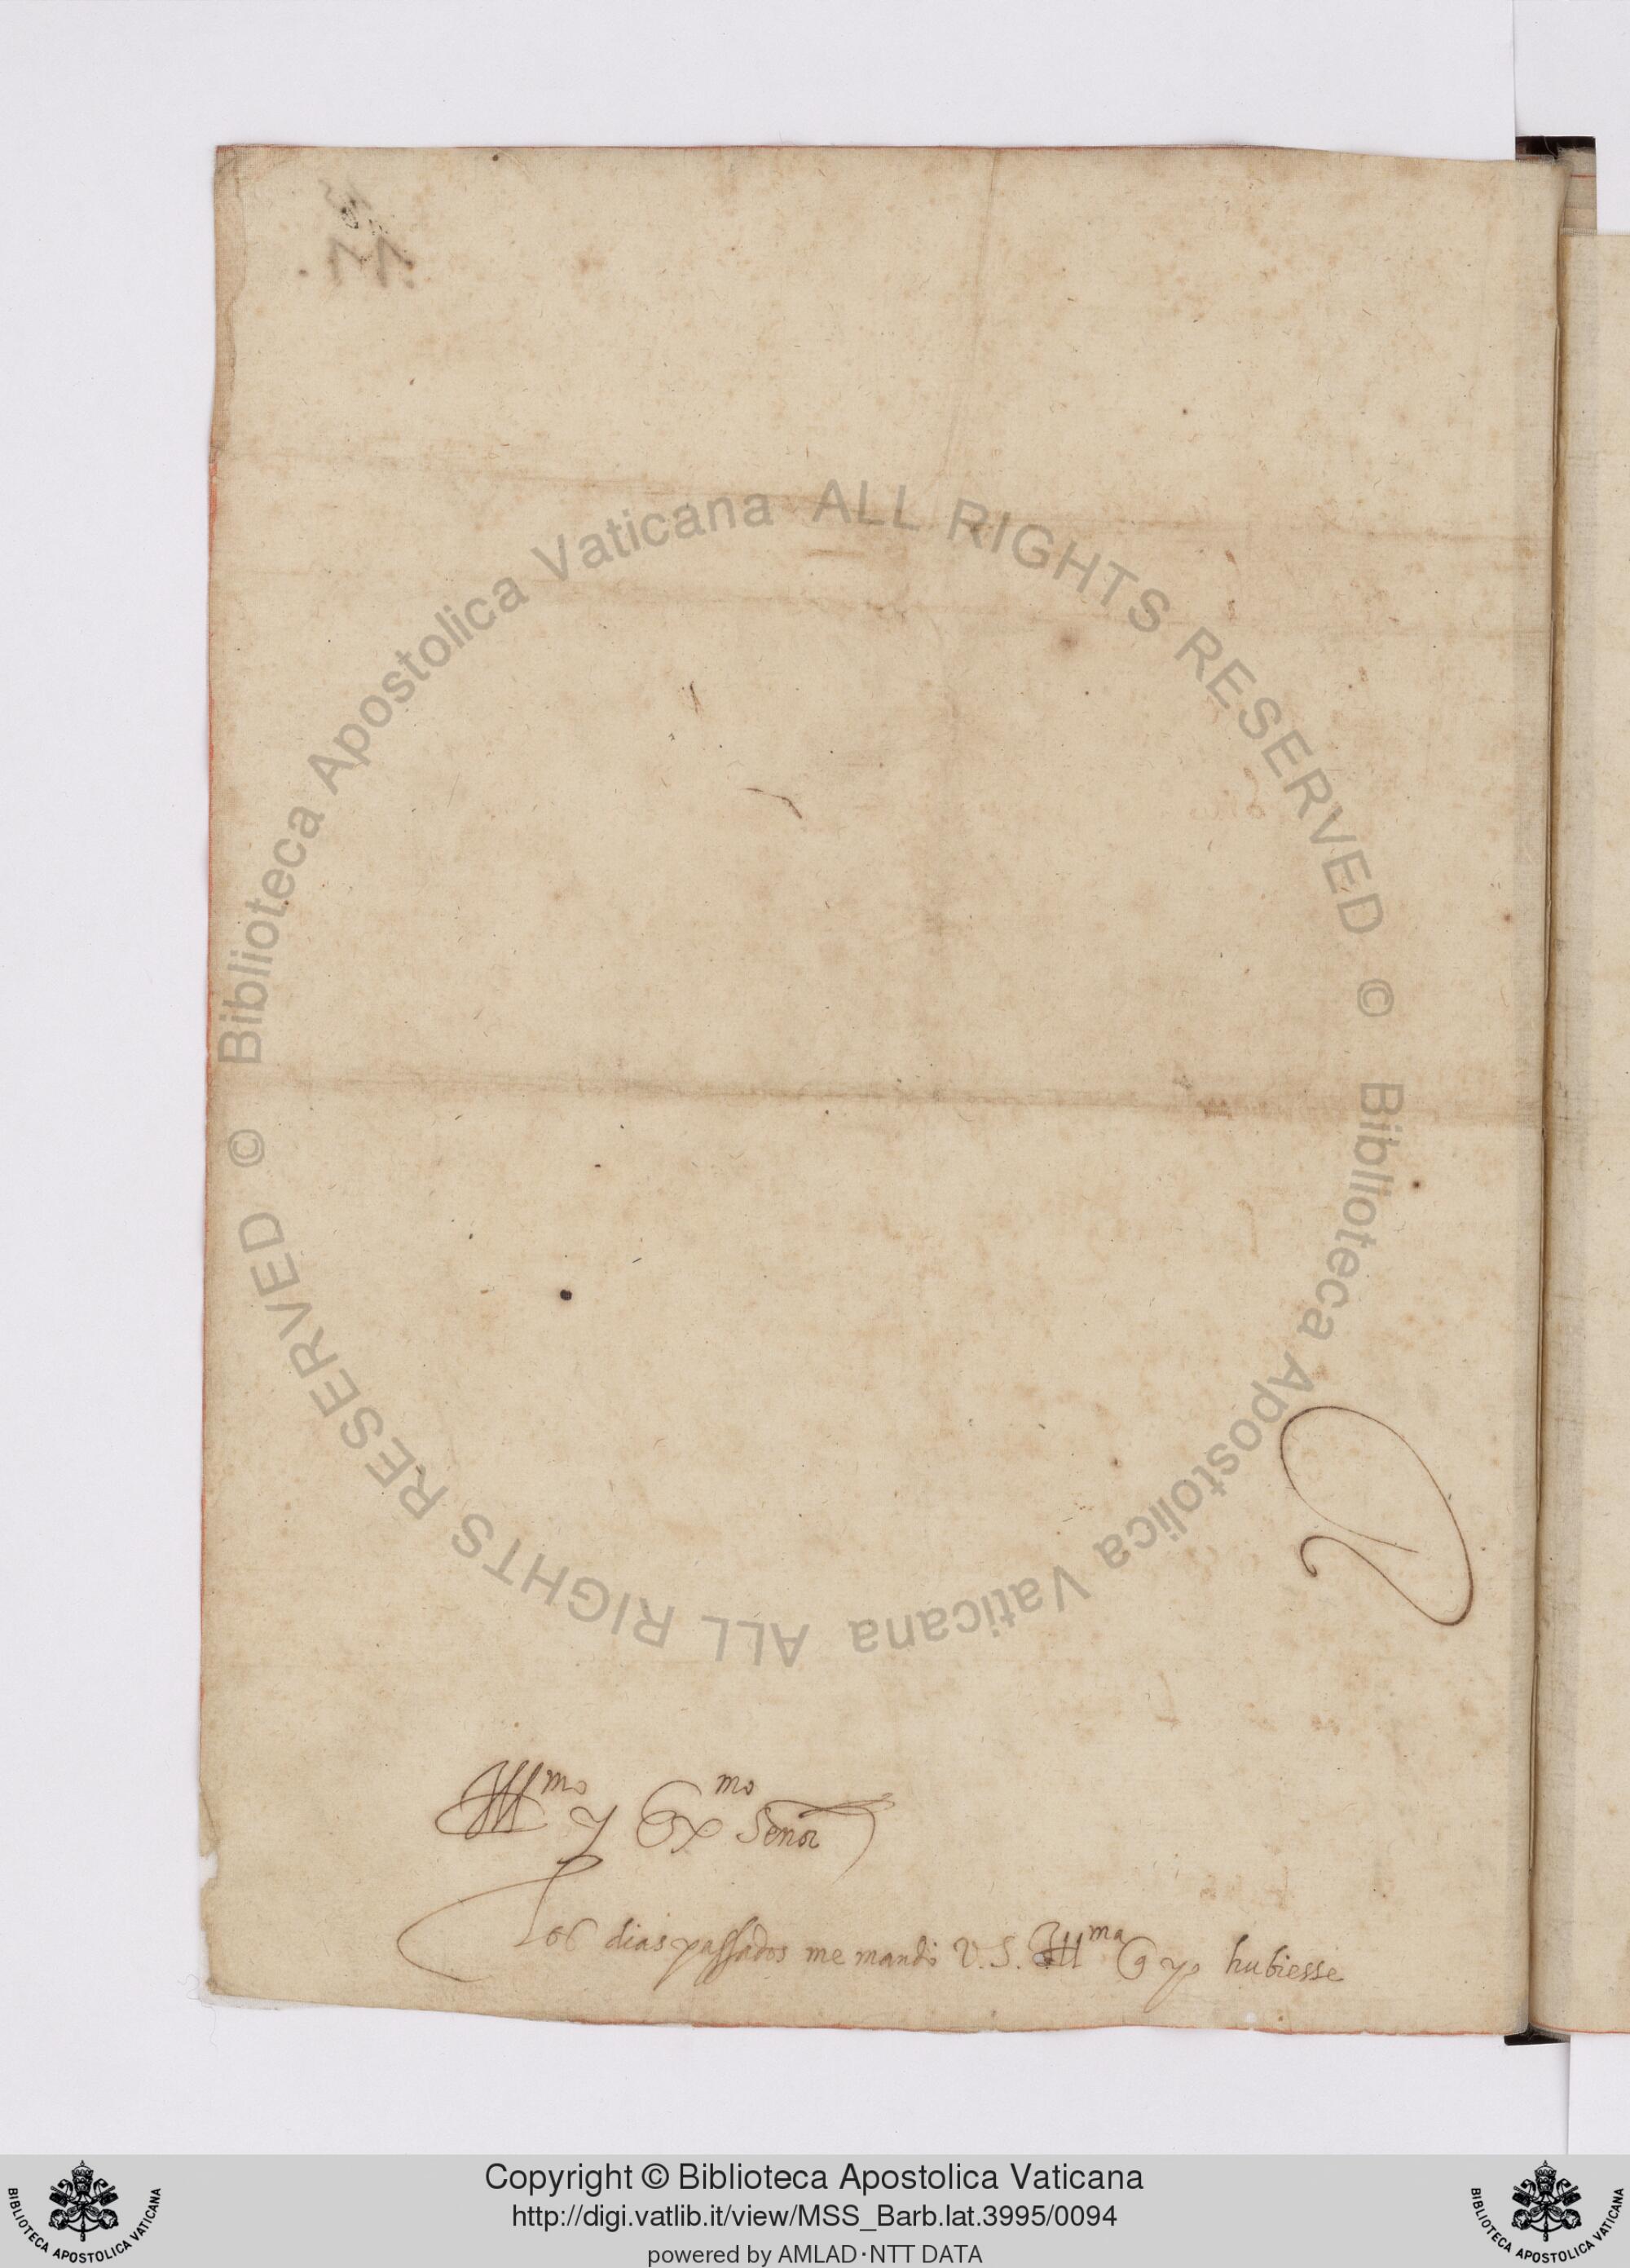 Ill^mo y Ex^mo Señor
Los dias passados me mandò V. S. Ill^ma q yo hubiesse
© Biblioteca Apostolica Vaticana ALL RIGHTS RESERVED © Biblioteca Apostolica Vaticana ALL RIGHTS RESERVED
Copyright © Biblioteca Apostolica Vaticana
http://digi.vatlib.it/view/MSS_Barb.lat.3995/0094
powered by AMLAD·NTT DATA
BIBLIOTECA APOSTOLICA VATICANA
BIBLIOTECA APOSTOLICA VATICANA